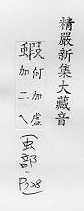 精嚴新集大藏音
蝦
何加二
加虛\
[虫部]
P328